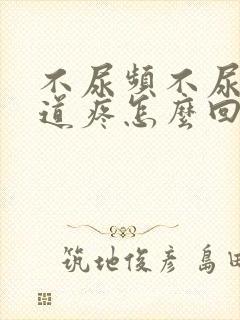 不尿頻不尿
道疼怎麼回
筑地俊彦 島田